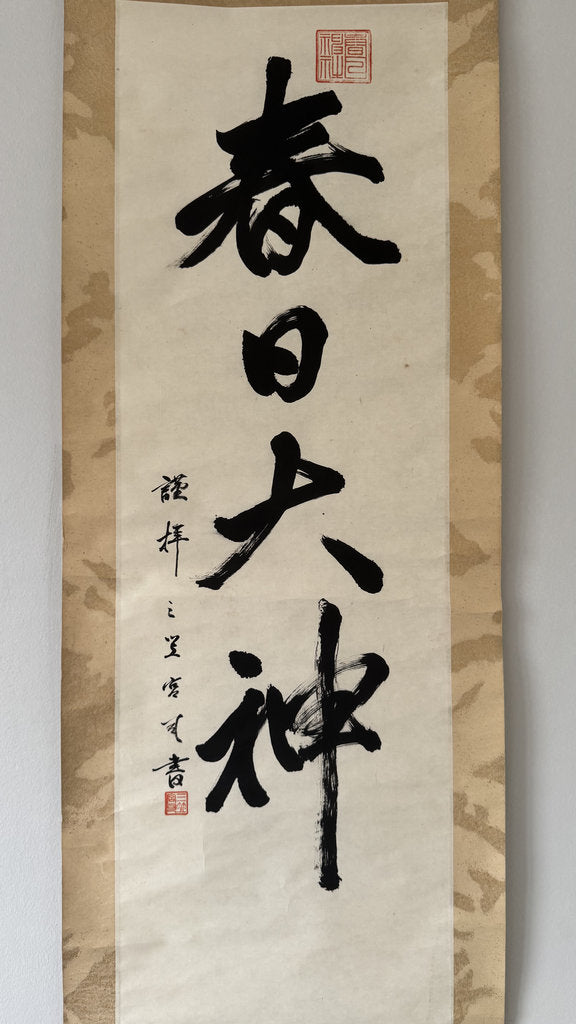 春日大神
謹拝 三笠宮 書